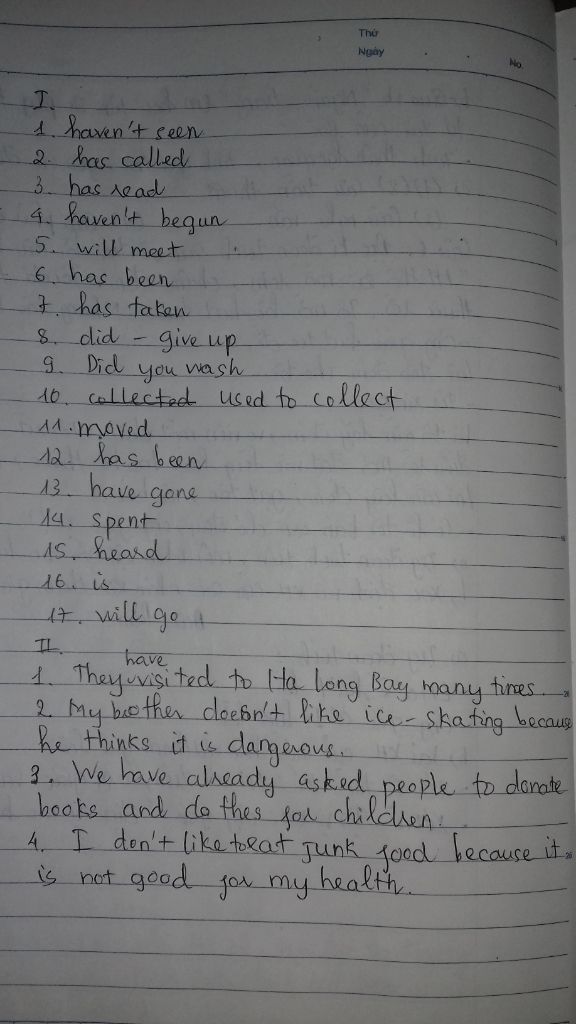 Thứ
Ngày
No.
I.
1. haven't seen
2. has called
3. has read
4. haven't begun
5. will meet
6. has been
7. has taken
8. did - give up
9. Did you wash
10. collected used to collect
11. moved
12. has been
13. have gone
14. spent
15. heard
16. is
17. will go
II.
have
1. They visited to Ha Long Bay many times.
2. My brother doesn't like ice-skating because
he thinks it is dangerous.
3. We have already asked people to donate
books and clothes for children.
4. I don't like to eat junk food because it
is not good for my health.